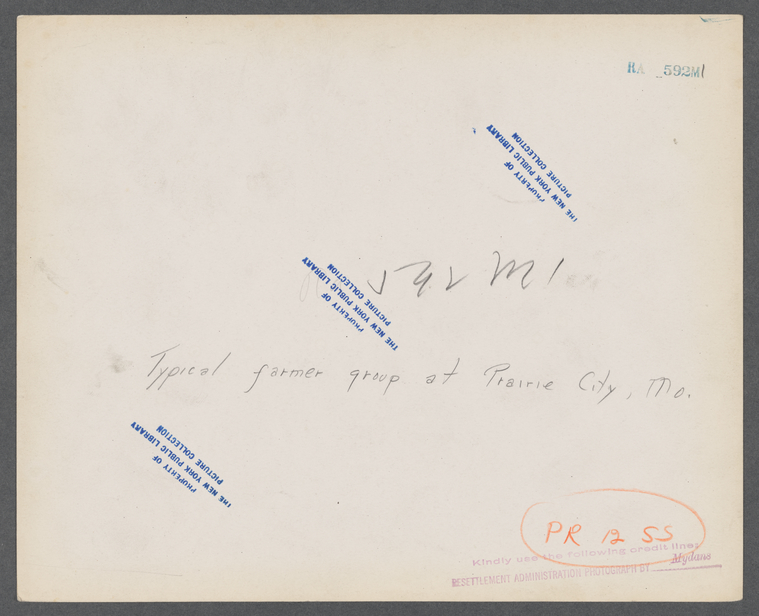 RA 592M1
PROPERTY OF
THE NEW YORK PUBLIC LIBRARY
PICTURE COLLECTION
592 M1
PROPERTY OF
THE NEW YORK PUBLIC LIBRARY
PICTURE COLLECTION
Typical farmer group at Prairie City, Mo.
PROPERTY OF
THE NEW YORK PUBLIC LIBRARY
PICTURE COLLECTION
PR 12 SS
Kindly use the following credit line:
RESETTLEMENT ADMINISTRATION PHOTOGRAPH BY Mydans